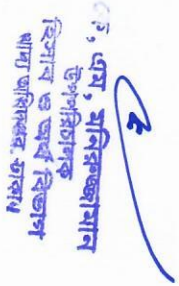 কে, এম, মনিরুজ্জামান
উপপরিচালক
হিসাব ও অর্থ বিভাগ
খাদ্য অধিদপ্তর, ঢাকা।